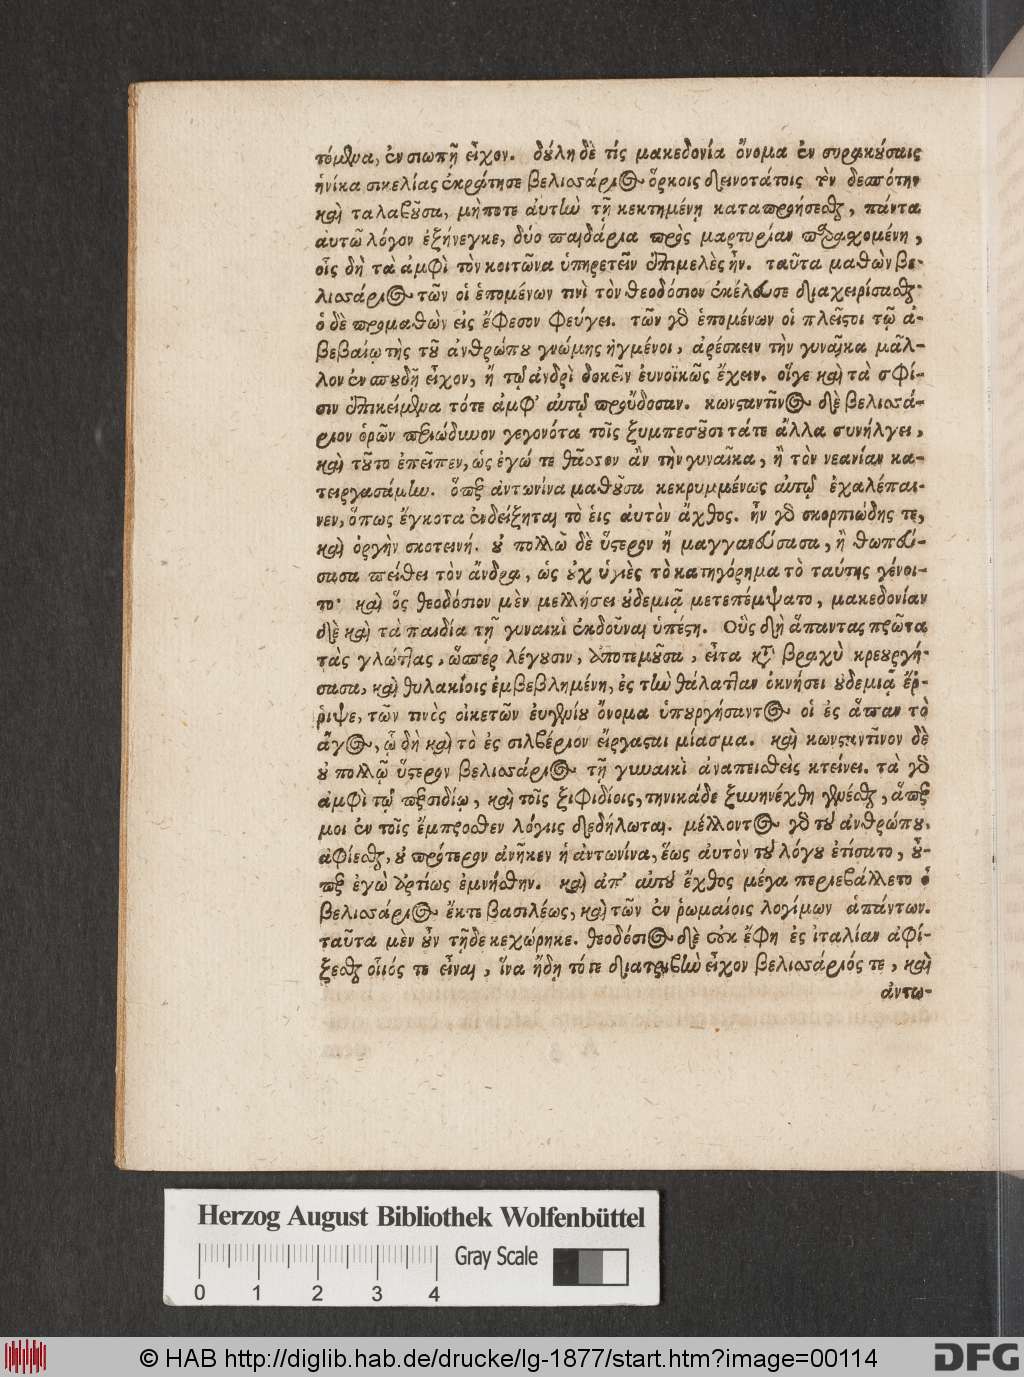 τόμενα, ἐν σιωπῇ εἶχον. δούλη δὲ τίς μακεδονία ὄνομα ἐν συρακούσαις
ἡνίκα σικελίας ἐκράτησε βελισάριος ὅρκοις δεινοτάτοις τὸν δεσπότην
καὶ ταλαβοῦσα, μὴποτε αὐτὼ τῇ κεκτημένῃ καταπροήσεσθαι, πάντα
αὐτῶ λόγον ἐξήνεγκε, δύο παιδάρια πρὸς μαρτυρίαν παρασχομένη,
οἷς δὴ τὰ ἀμφὶ τὸν κοιτῶνα ὑπηρετεῖν ἐπιμελὲς ἦν. ταῦτα μαθὼν βε-
λισάριος τῶν οἱ ἑπομένων τινὶ τὸν θεοδόσιον ἐκέλευσε διαχειρίσασθαι·
ὁ δὲ προμαθὼν εἰς ἔφεσον φεύγει. τῶν γὰρ ἑπομένων οἱ πλεῖστοι τῷ ἀ-
βεβαίῳ τῆς τοῦ ἀνθρώπου γνώμης ἡγμένοι, ἀρέσκειν τὴν γυναῖκα μᾶλ-
λον ἐν σπουδῇ εἶχον, ἢ τῷ ἀνδρὶ δοκεῖν εὐνοϊκῶς ἔχειν. οἵγε καὶ τὰ σφί-
σιν ἐπικείμενα τότε ἀμφ' αὐτῷ προὔδοσαν. κωνσταντῖνος δὲ βελισά-
ριον ὁρῶν περιώδυνον γεγονότα τοῖς ξυμπεσοῦσι τάτε ἄλλα συνήλγει,
καὶ τοῦτο ἐπεῖπεν, ὡς ἐγώ τε θᾶσσον ἂν τὴν γυναῖκα, ἢ τὸν νεανίαν κα-
τειργασάμην. ὅπερ ἀντωνίνα μαθοῦσα κεκρυμμένως αὐτῷ ἐχαλέπαι-
νεν, ὅπως ἔγκοτα ἐνδείξηται τὸ εἰς αὐτὸν ἄχθος. ἦν γὰρ σκορπιώδης τε,
καὶ ὀργὴν σκοτεινή. οὐ πολλῶ δὲ ὕστερον ἢ μαγγανεύσασα, ἢ θωπεύ-
σασα πείθει τὸν ἄνδρα, ὡς οὐχ ὑγιὲς τὸ κατηγόρημα τὸ ταύτης γένοι-
το· καὶ ὃς θεοδόσιον μὲν μελλήσει οὐδεμιᾷ μετεπέμψατο, μακεδονίαν
δὲ καὶ τὰ παιδία τῇ γυναικὶ ἐκδοῦναι ὑπέστη. Οὓς δὴ ἅπαντας πρῶτα
τὰς γλώττας, ὥσπερ λέγουσιν, ἀποτεμοῦσα, εἶτα κατὰ βραχὺ κρεουργή-
σασα, καὶ θυλακίοις ἐμβεβλημένη, ἐς τὴν θάλατταν ὀκνήσει οὐδεμιᾷ ἔρ-
ριψε, τῶν τινὸς οἰκετῶν εὐγενίου ὄνομα ὑπουργήσαντος οἱ ἐς ἅπαν τὸ
ἄγος, ᾧ δὴ καὶ τὸ ἐς σιλβέριον εἴργασται μίασμα. καὶ κωνσταντῖνον δὲ
οὐ πολλῷ ὕστερον βελισάριος τῇ γυναικὶ ἀναπεισθεὶς κτείνει. τὰ γὰρ
ἀμφὶ τῷ περσιδίῳ, καὶ τοῖς ξιφιδίοις, τηνικάδε ξυνηνέχθη γενέσθαι, ἅπερ
μοι ἐν τοῖς ἔμπροσθεν λόγοις δεδήλωται. μέλλοντος γὰρ τοῦ ἀνθρώπου,
ἀφίεσθαι, οὐ πρότερον ἀνῆκεν ἡ ἀντωνίνα, ἕως αὐτὸν τοῦ λόγου ἐτίσατο, οὗ-
περ ἐγὼ ἀρτίως ἐμνήσθην. καὶ ἀπ' αὐτοῦ ἔχθος μέγα περιεβάλλετο ὁ
βελισάριος ἔκτε βασιλέως, καὶ τῶν ἐν ῥωμαίοις λογίμων ἁπάντων.
ταῦτα μὲν οὖν τῇδε κεχώρηκε. θεοδόσιος δὲ οὐκ ἔφη ἐς ἰταλίαν ἀφί-
ξεσθαι οἷός τε εἶναι, ἵνα ἤδη τότε διατριβὴν εἶχον βελισάριός τε, καὶ
ἀντω-
Herzog August Bibliothek Wolfenbüttel
Gray Scale
0 1 2 3 4
© HAB http://diglib.hab.de/drucke/lg-1877/start.htm?image=00114
DFG